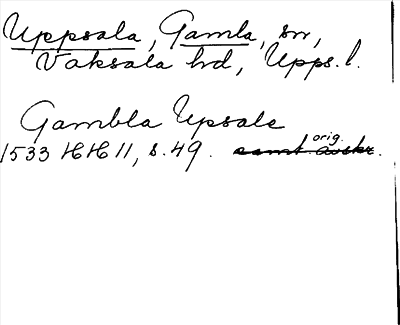 Uppsala, Gamla, sn,
Vaksala hd, Upps. l.
Gambla Upsale
1533 HH 11, s. 49. samt. avskr. orig.